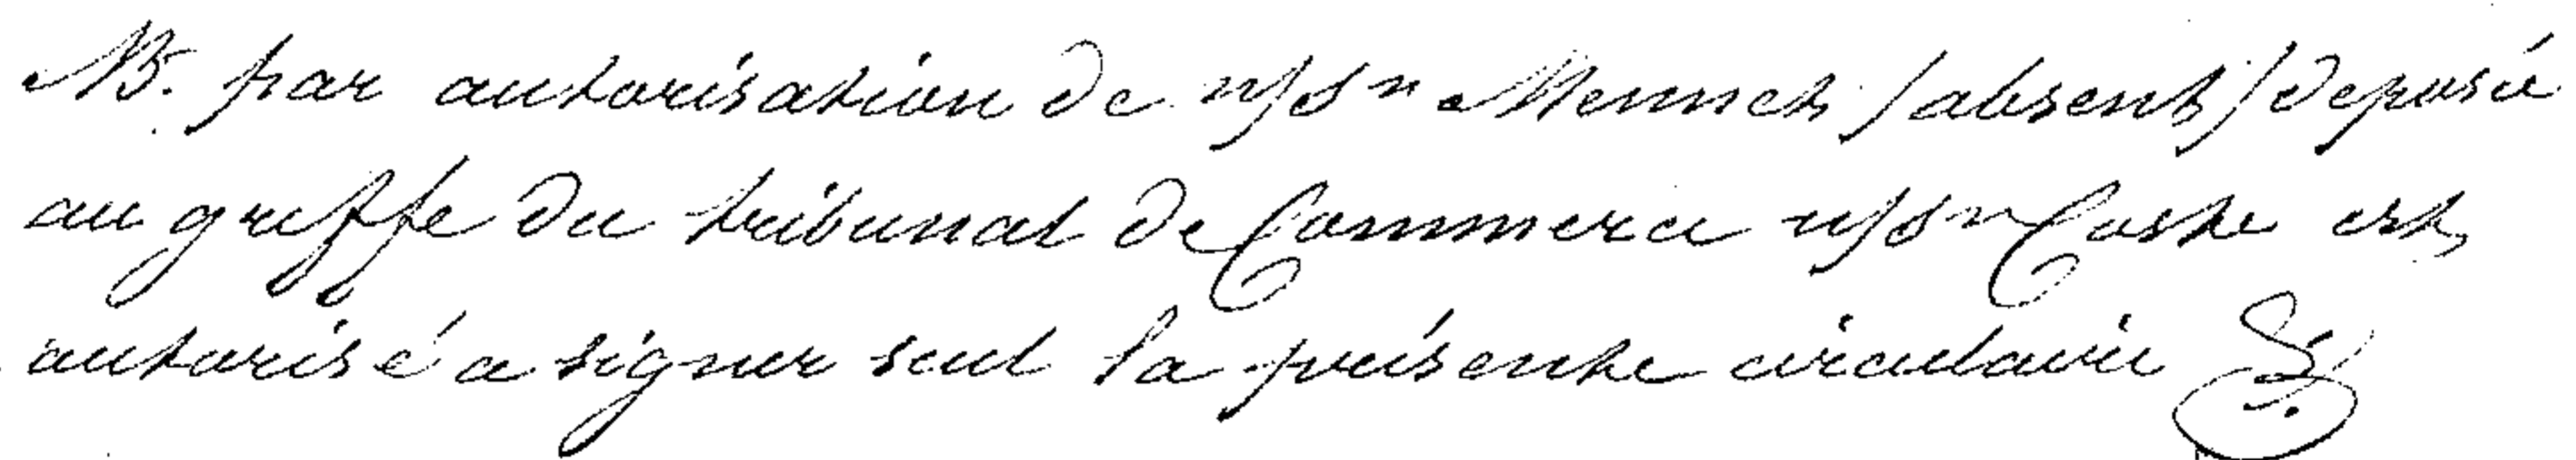 NB. par autorisation de n/ Sr Mennet /absent/ deposée
au greffe du tribunal de Commerce n/ Sr Coste est
autorisé a signer seul la présente circulaire